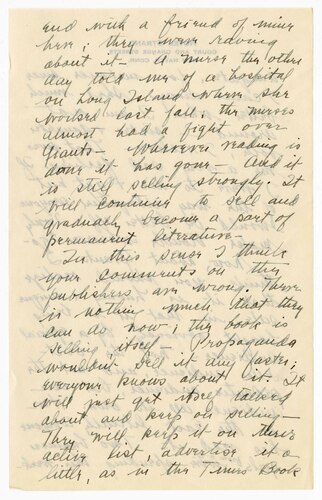 end with a friend of mine
here; they were raving
about it — A nurse the other
day told me of a hospital
on Long Island where she
worked last fall; the nurses
almost had a fight over
Giants — Wherever reading is
done it has gone — And it
is still selling strongly. It
will continue to sell and
gradually become a part of
permanent literature —
In this sense I think
your comments on the
publishers are wrong. There
is nothing much that they
can do now; the book is
selling itself — Propaganda
wouldn't sell it any faster;
everyone knows about it. It
will just get itself talked
about and keep on selling —
They will keep it on their
active list, advertise it a
little, as in the Times Book